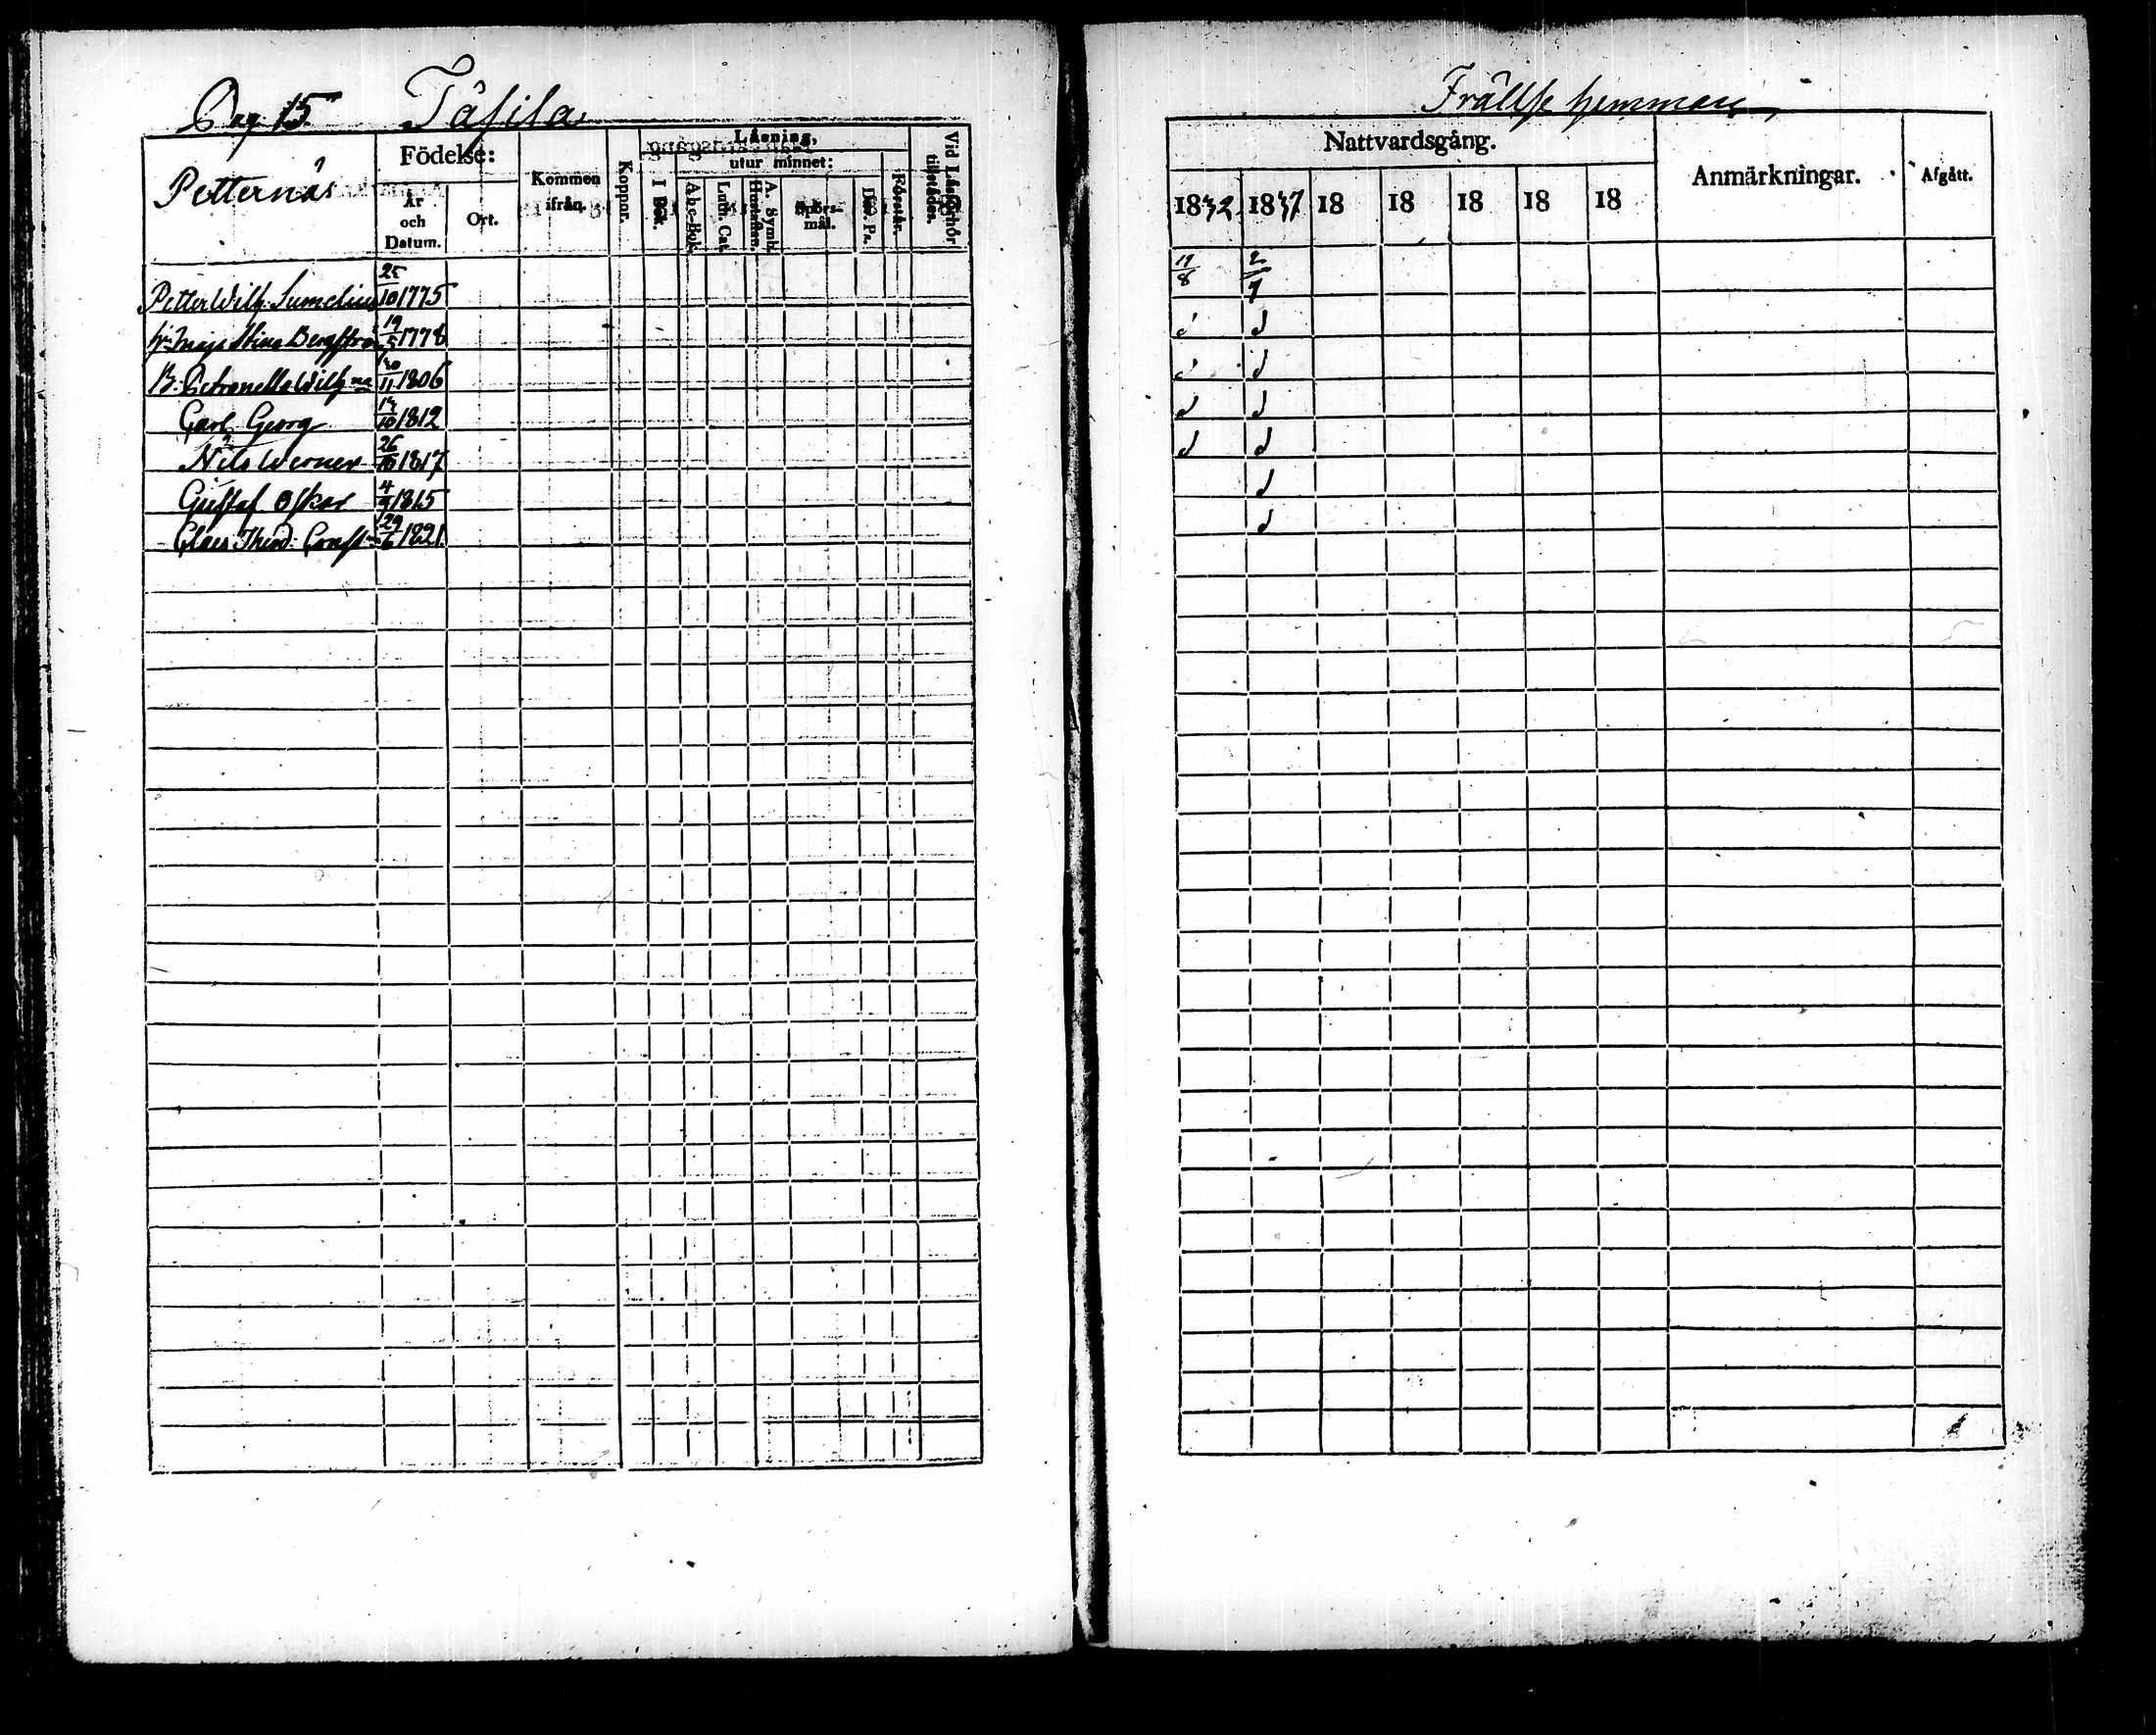 Pag 15. Täfila
Petternäs
Födelse:
År och Datum.
Ort.
Kommen ifrån.
Koppor.
Läsning,
utur minnet:
I Bok.
Abc-Bok.
Luth. Cat.
A. Symb. Hustaflan.
Spörsmål.
Dav. Ps.
Förstår.
Vid Läseförhör tillstädes.
Petter Wilh: Sumelius 25/10 1775
Maja Stina Bergström 19/5 1778
B: Petronella Wilh:na 30/11 1806
Carl Georg 14/10 1812
Nils Werner 26/10 1817
Gustaf Oskar 4/9 1815
Claes Theod: Const: 29/6 1821
Frälse hemman
Nattvardsgång.
Anmärkningar.
Afgått.
1832 1837 18 18 18 18 18
17/8 2/7